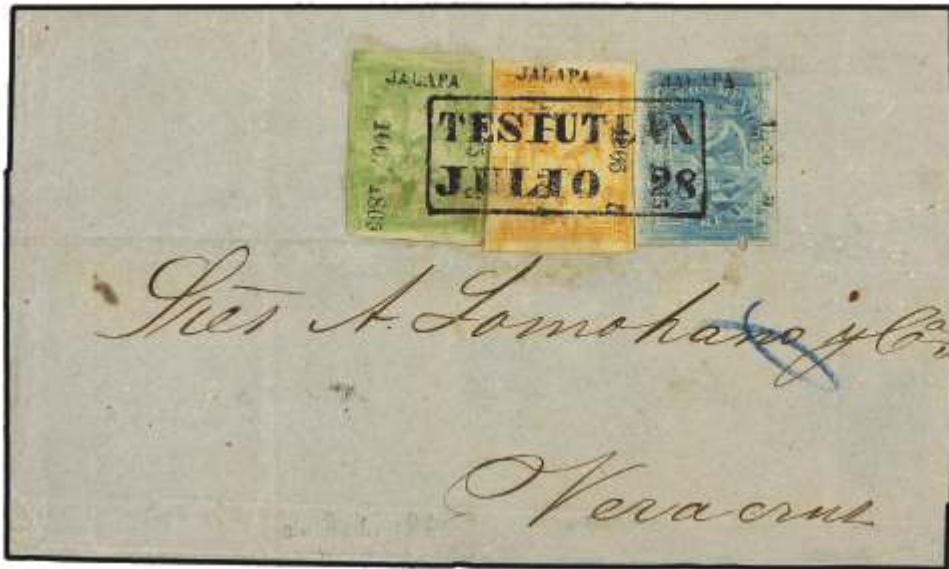 JALAPA JALAPA JALAPA
TESIUTLAN
JULIO 28
Sres A. Lomohano y Ca
Veracruz